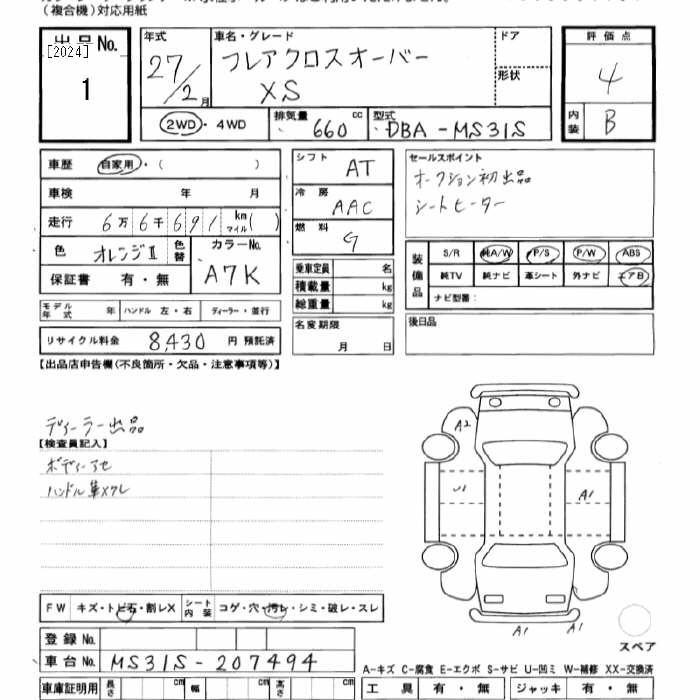 （複合機）対応用紙
出品No.
[2024]
1
年式
27/2月
車名・グレード
フレアクロスオーバー
XS
ドア
形状
評価点
4
内装
B
2WD・4WD
排気量
660 cc
型式
DBA-MS31S
車歴 自家用・（　　　）
車検 年 月
走行 6万6千691 km マイル（　）
色 オレンジⅡ 色替
カラーNo.
A7K
保証書 有・無
シフト AT
冷房 AAC
燃料 G
乗車定員 名
積載量 kg
総重量 kg
名変期限
月 日
セールスポイント
オークション初出品
シートヒーター
装備品
S/R 純A/W P/S P/W ABS
純TV 純ナビ 革シート 外ナビ エアB
ナビ型番：
後日品
モデル年式 年 ハンドル 左・右 ディーラー・並行
リサイクル料金 8,430 円 預託済
【出品店申告欄（不良箇所・欠品・注意事項等）】
ディーラー出品
【検査員記入】
ボディーアセ
ハンドル革スレ
A2
U1
A1
A1 A1
スペア
FW キズ・トビ石・割レX シート内装 コゲ・穴・汚レ・シミ・破レ・スレ
登録No.
車台No. MS31S-207494
A-キズ C-腐食 E-エクボ S-サビ U-凹ミ W-補修 XX-交換済
車庫証明用 長さ cm 幅 cm 高さ cm
工具 有・無 ジャッキ 有・無